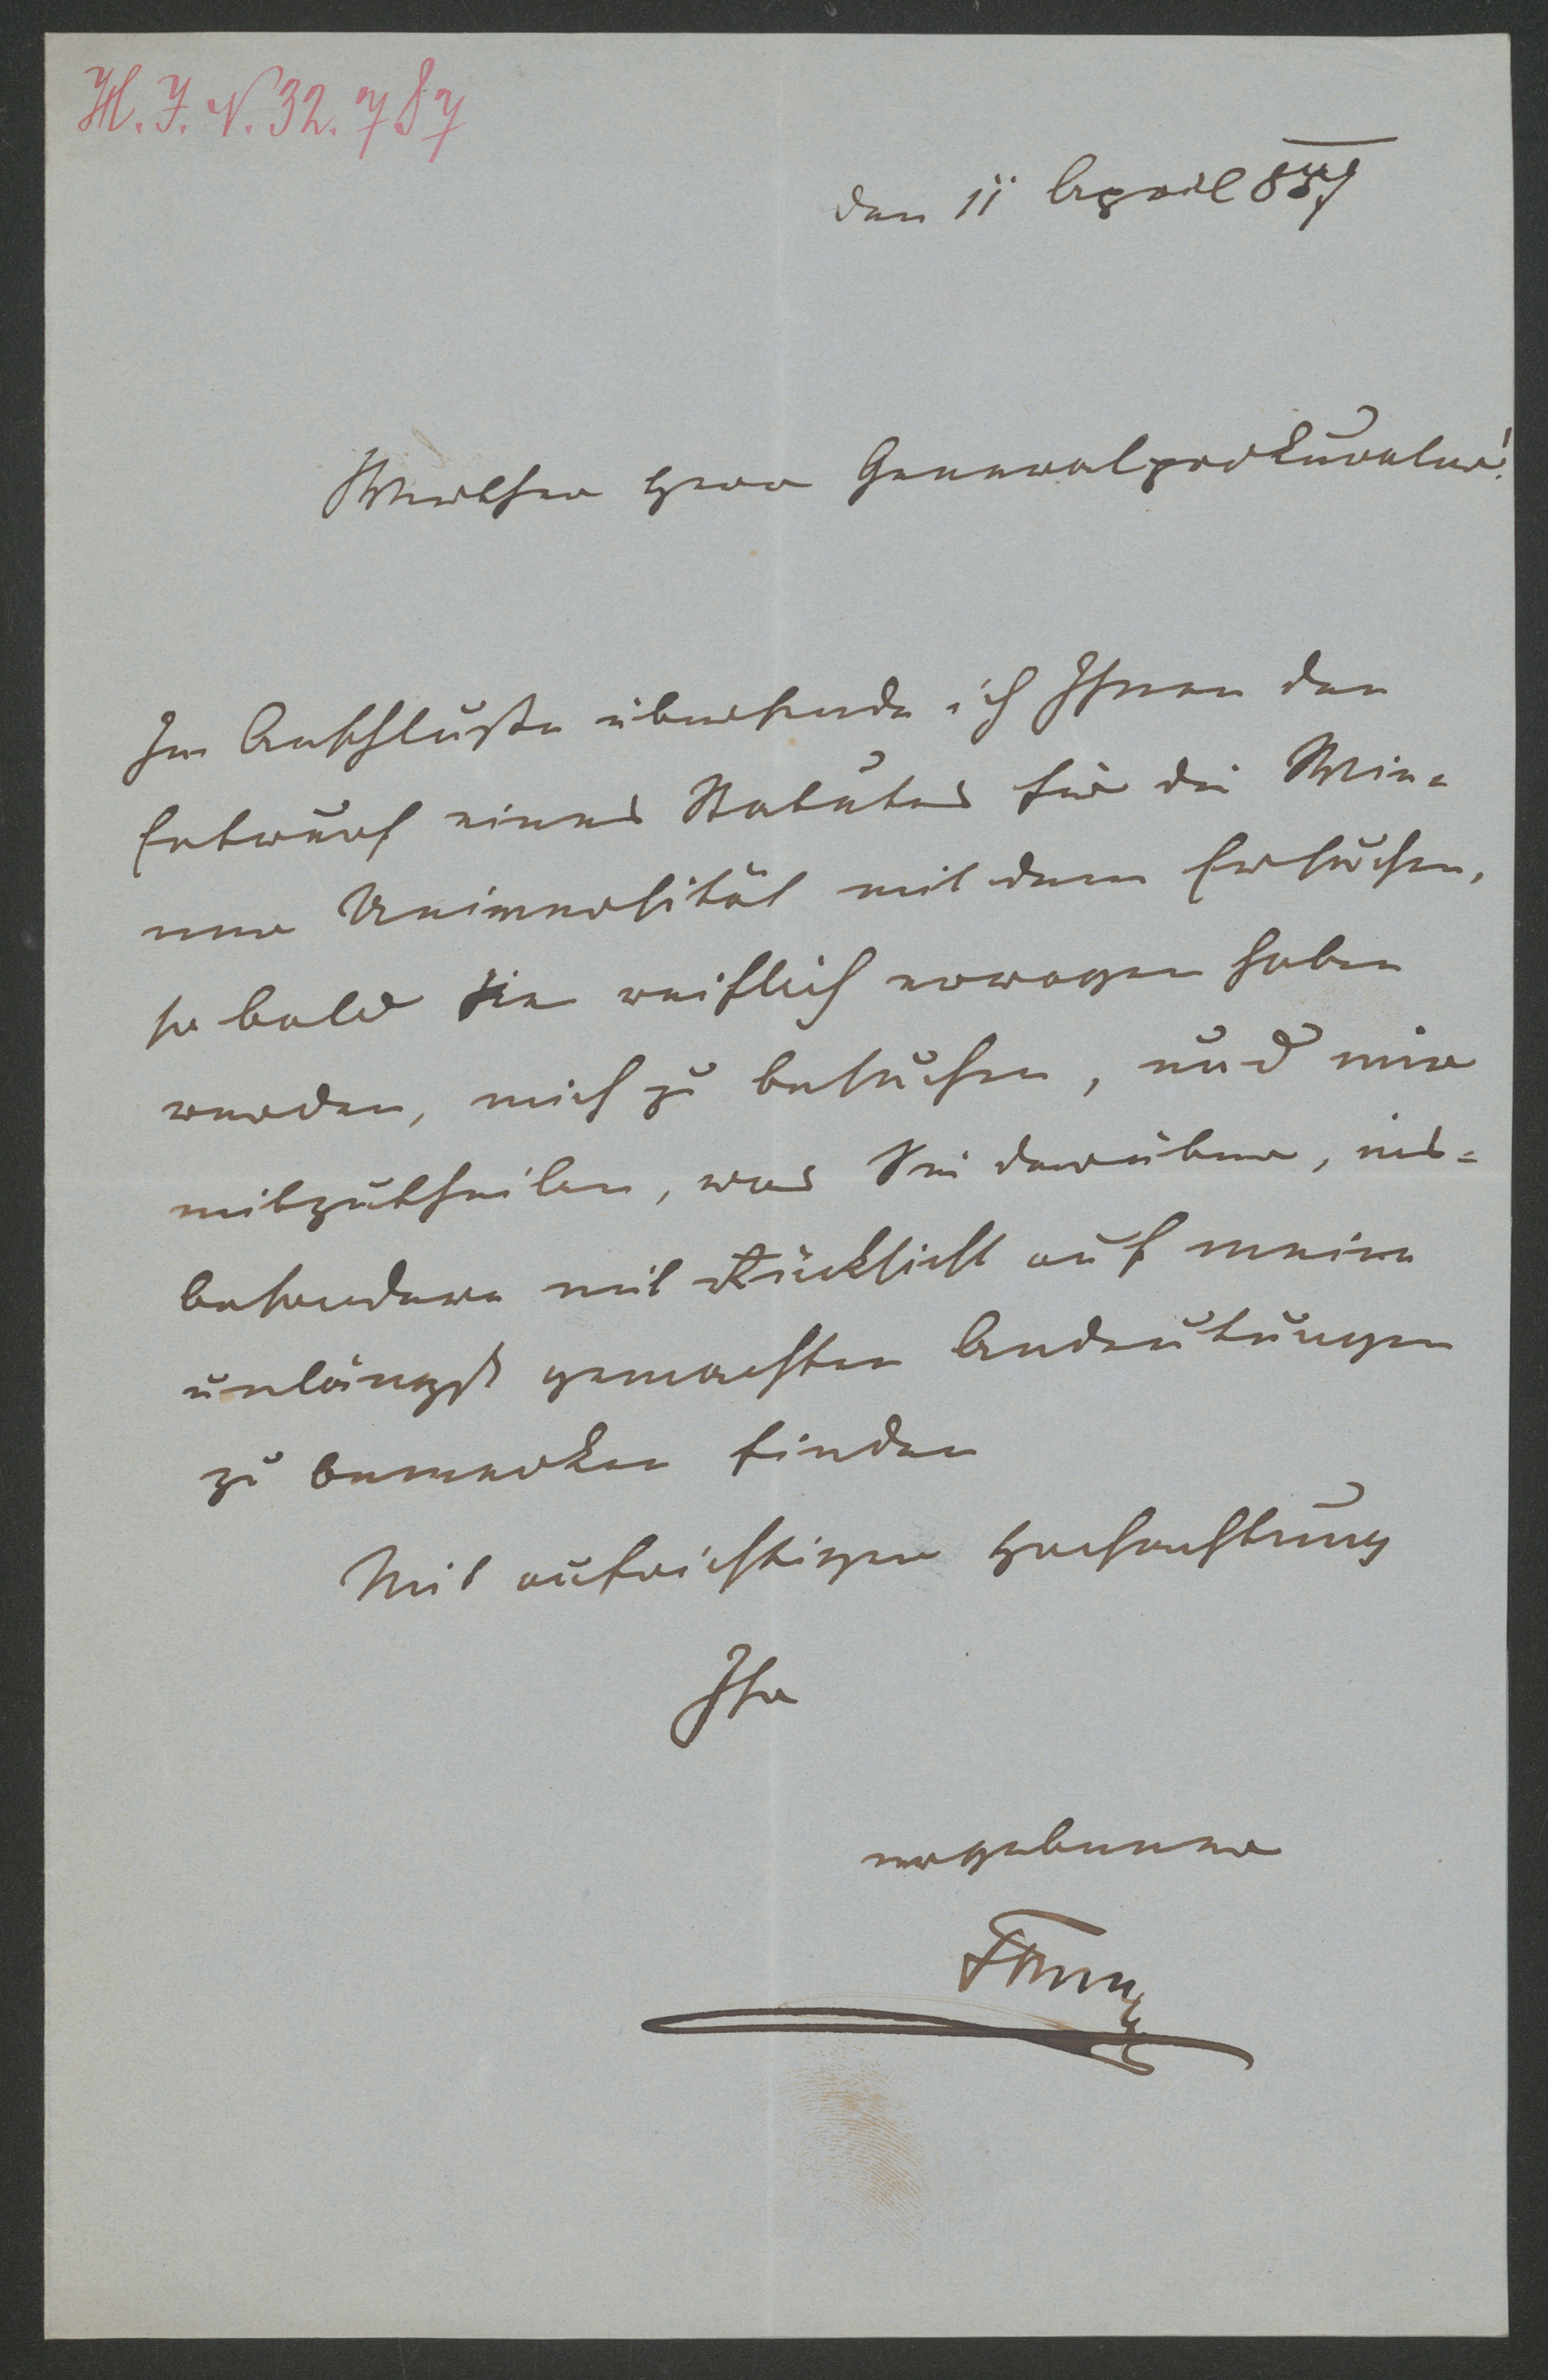 H. I. N. 32.787
den 11 April 857
Werther Herr Generalprokurator!
Im Anschluße übersende ich Ihnen den
Entwurf eines Statutes für die Wie-
ner Universität mit dem Ersuchen,
so bald Sie reiflich erwogen haben
werden, mich zu besuchen, und mir
mitzutheilen, was Sie darüber, ins-
besondere mit Rücksicht auf meine
unlängst gemachten Andeutungen
zu bemerken finden
Mit aufrichtiger Hochachtung
Ihr
ergebener